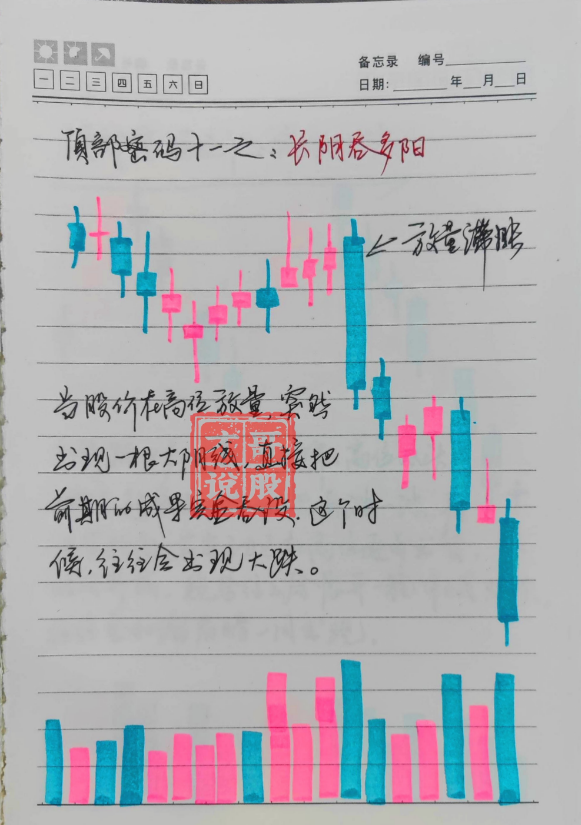 备忘录 编号
一 二 三 四 五 六 日
日期: 年 月 日
顶部密码十一之:长阴吞多阳
放量滞胀
当股价在高位放量,突然
出现一根大阴线,直接把
前期的成果完全吞没.这个时
候,往往会出现大跌。
哥股
说